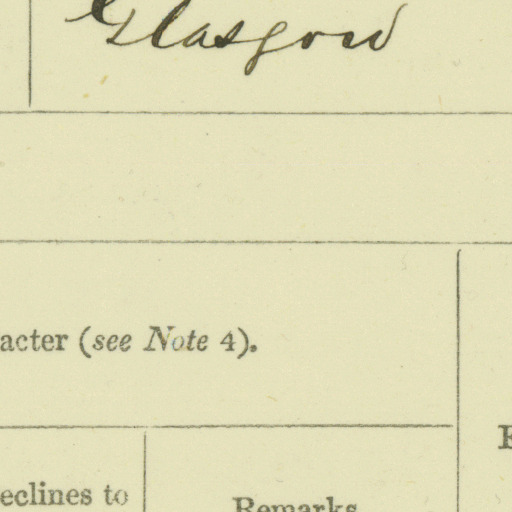 Glasgow
acter (see Note 4).
eclines to
Remarks